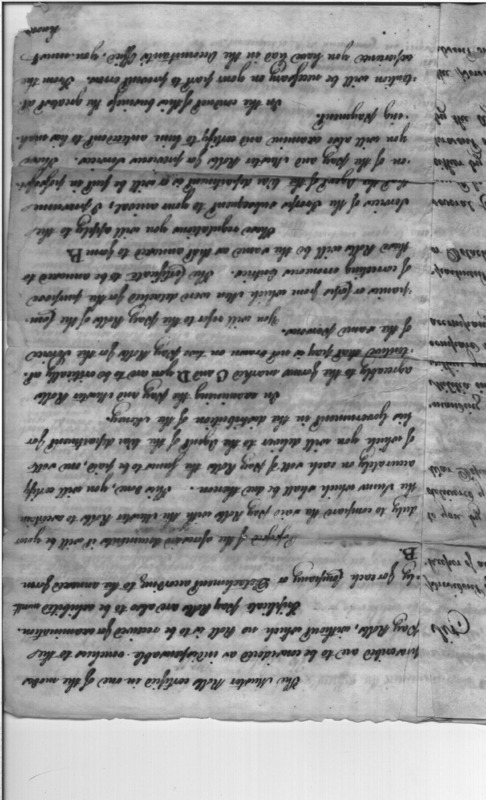 The Muster Rolls certified in one of the modes
prescribed are to be considered as indispensable vouchers to the
Pay Rolls, without which no Roll is to be received for examination.
Triplicate Pay Rolls are also to be exhibited month
-ly for each Company or Detachment according to the annexed form
B.
Possessed of the aforesaid documents it will be your
duty to compare the said Pay Rolls with the Muster Rolls to ascertain
the sums which shall be due thereon. This done, you will certify
accurately on each sett of Pay Rolls the sums to be paid, one sett
of which you will deliver to the Agent of the War department for
his Government in the distribution of the Money.
In examining the Pay and Muster Rolls
agreeably to the forms marked C and D you are to be critically at-
-tentive that pay is not drawn on two Pay Rolls for the Service
of the same persons.
You will refer to the Pay Rolls of the Com-
-panies or Corps from which Men were detached for the purpose
of correcting erroneous Entries. The Certificate to be annexed to
these Rolls will be the same as that annexed to form B.
These regulations you will apply to the
Services of the Troops subsequent to your arrival. I presume
the Agent of the War department is or will be put in possession
of the Pay and Muster Rolls for previous Services. These
you will also examine and certify to him antecedent to his mak-
-ing payment.
In the conduct of this business the greatest at
-tention will be necessary on your part to prevent errors. From the
experience you have had in the Accountants Office you must
know